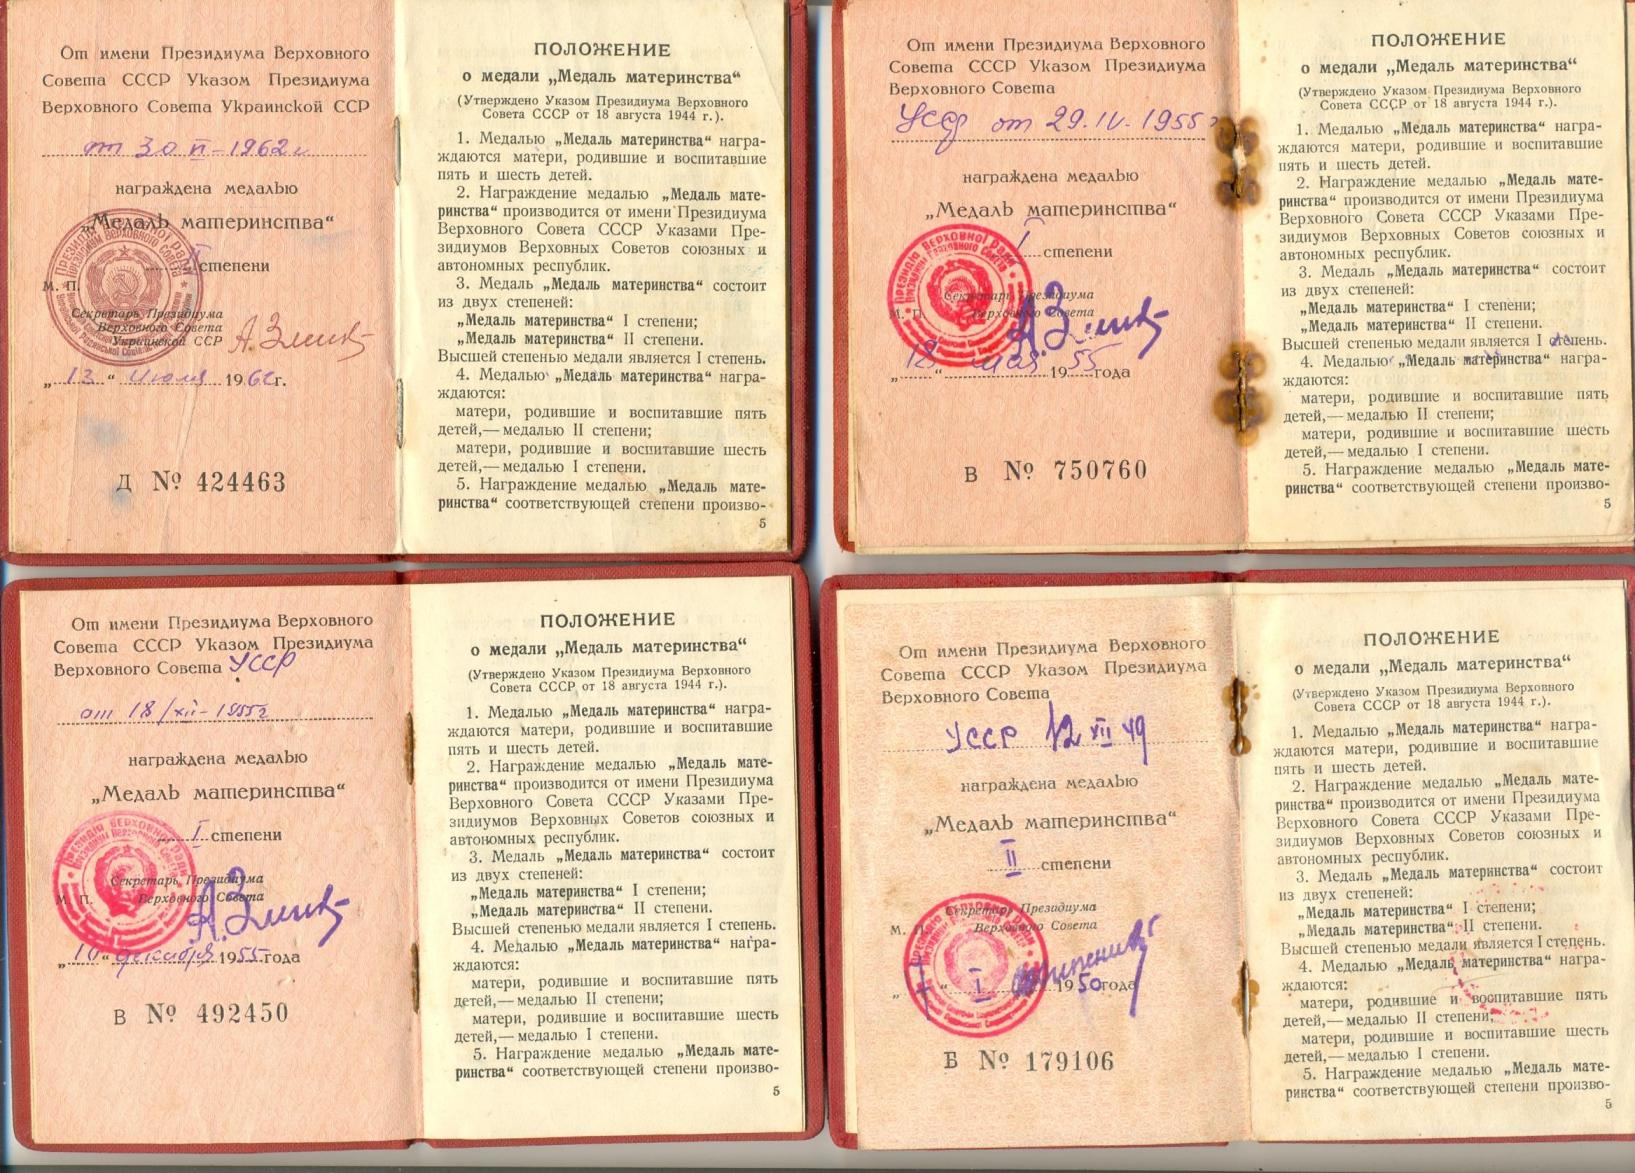 От имени Президиума Верховного
Совета СССР Указом Президиума
Верховного Совета Украинской ССР
от 30 VI - 1962 г
награждена медалью
„Медаль материнства“
степени
М. П.
Секретарь Президиума
Верховного Совета
Украинской ССР
„ 13 “ июля 1962 г.
Д № 424463
ПОЛОЖЕНИЕ
о медали „Медаль материнства“
(Утверждено Указом Президиума Верховного
Совета СССР от 18 августа 1944 г.).
1. Медалью „Медаль материнства“ награ-
ждаются матери, родившие и воспитавшие
пять и шесть детей.
2. Награждение медалью „Медаль мате-
ринства“ производится от имени Президиума
Верховного Совета СССР Указами Пре-
зидиумов Верховных Советов союзных и
автономных республик.
3. Медаль „Медаль материнства“ состоит
из двух степеней:
„Медаль материнства“ I степени;
„Медаль материнства“ II степени.
Высшей степенью медали является I степень.
4. Медалью „Медаль материнства“ награ-
ждаются:
матери, родившие и воспитавшие пять
детей,— медалью II степени;
матери, родившие и воспитавшие шесть
детей,— медалью I степени.
5. Награждение медалью „Медаль мате-
ринства“ соответствующей степени произво-
5
От имени Президиума Верховного
Совета СССР Указом Президиума
Верховного Совета
УССР от 29. IV - 1955 г
награждена медалью
„Медаль материнства“
I степени
Секретарь Президиума
М. П. Верховного Совета
„ 18 “ мая 1955 года
В № 750760
ПОЛОЖЕНИЕ
о медали „Медаль материнства“
(Утверждено Указом Президиума Верховного
Совета СССР от 18 августа 1944 г.).
1. Медалью „Медаль материнства“ награ-
ждаются матери, родившие и воспитавшие
пять и шесть детей.
2. Награждение медалью „Медаль мате-
ринства“ производится от имени Президиума
Верховного Совета СССР Указами Пре-
зидиумов Верховных Советов союзных и
автономных республик.
3. Медаль „Медаль материнства“ состоит
из двух степеней:
„Медаль материнства“ I степени;
„Медаль материнства“ II степени.
Высшей степенью медали является I степень.
4. Медалью „Медаль материнства“ награ-
ждаются:
матери, родившие и воспитавшие пять
детей,— медалью II степени;
матери, родившие и воспитавшие шесть
детей,— медалью I степени.
5. Награждение медалью „Медаль мате-
ринства“ соответствующей степени произво-
5
От имени Президиума Верховного
Совета СССР Указом Президиума
Верховного Совета УССР
от 18/XII - 1955 г
награждена медалью
„Медаль материнства“
I степени
Секретарь Президиума
М. П. Верховного Совета
„ “ декабря 1955 года
В № 492450
ПОЛОЖЕНИЕ
о медали „Медаль материнства“
(Утверждено Указом Президиума Верховного
Совета СССР от 18 августа 1944 г.).
1. Медалью „Медаль материнства“ награ-
ждаются матери, родившие и воспитавшие
пять и шесть детей.
2. Награждение медалью „Медаль мате-
ринства“ производится от имени Президиума
Верховного Совета СССР Указами Пре-
зидиумов Верховных Советов союзных и
автономных республик.
3. Медаль „Медаль материнства“ состоит
из двух степеней:
„Медаль материнства“ I степени;
„Медаль материнства“ II степени.
Высшей степенью медали является I степень.
4. Медалью „Медаль материнства“ награ-
ждаются:
матери, родившие и воспитавшие пять
детей,— медалью II степени;
матери, родившие и воспитавшие шесть
детей,— медалью I степени.
5. Награждение медалью „Медаль мате-
ринства“ соответствующей степени произво-
5
От имени Президиума Верховного
Совета СССР Указом Президиума
Верховного Совета
УССР 12 XII 49
награждена медалью
„Медаль материнства“
II степени
Секретарь Президиума
М. П. Верховного Совета
„ “ I 1950 года
Б № 179106
ПОЛОЖЕНИЕ
о медали „Медаль материнства“
(Утверждено Указом Президиума Верховного
Совета СССР от 18 августа 1944 г.).
1. Медалью „Медаль материнства“ награ-
ждаются матери, родившие и воспитавшие
пять и шесть детей.
2. Награждение медалью „Медаль мате-
ринства“ производится от имени Президиума
Верховного Совета СССР Указами Пре-
зидиумов Верховных Советов союзных и
автономных республик.
3. Медаль „Медаль материнства“ состоит
из двух степеней:
„Медаль материнства“ I степени;
„Медаль материнства“ II степени.
Высшей степенью медали является I степень.
4. Медалью „Медаль материнства“ награ-
ждаются:
матери, родившие и воспитавшие пять
детей,— медалью II степени;
матери, родившие и воспитавшие шесть
детей,— медалью I степени.
5. Награждение медалью „Медаль мате-
ринства“ соответствующей степени произво-
5